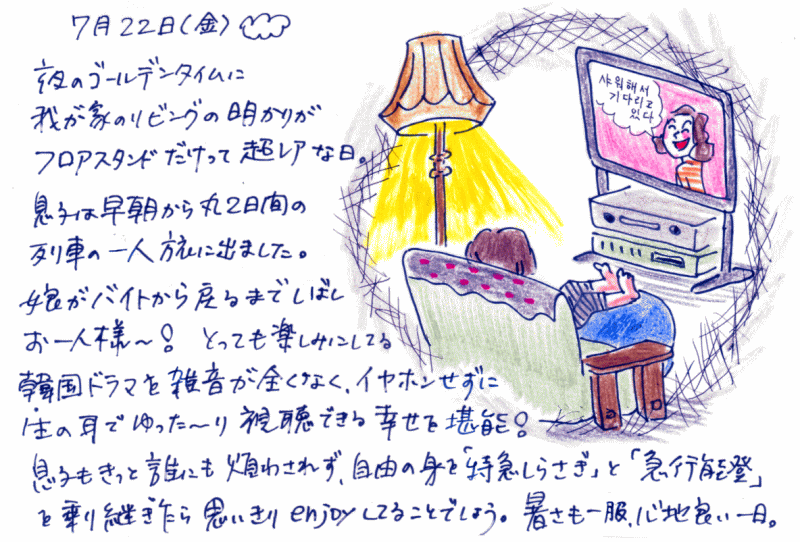 7月22日(金)
夜のゴールデンタイムに
我が家のリビングの明かりが
フロアスタンドだけって超レアな日。
息子は早朝から丸2日間の
列車の一人旅に出ました。
娘がバイトから戻るまでしばし
お一人様〜! とっても楽しみにしてる
韓国ドラマを雑音が全くなく、イヤホンせずに
生の耳でゆった〜り視聴できる幸せを堪能!
息子もきっと誰にも煩わされず、自由の身を「特急しらさぎ」と「急行能登」
を乗り継ぎながら思いきりenjoyしてることでしょう。暑さも一服、心地良い一日。
샤워해서
기다리고
있다